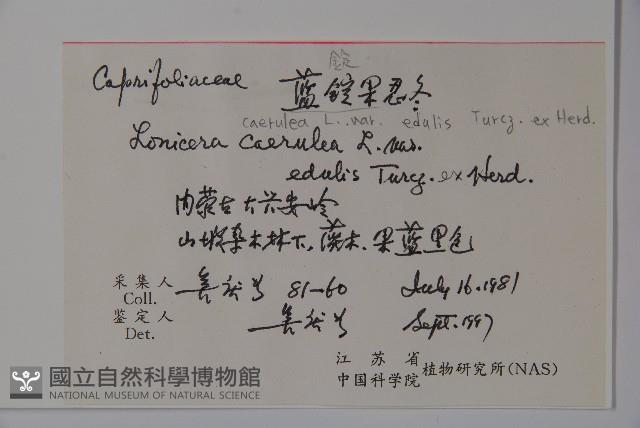 錠
Caprifoliaceae 蓝錠果忍冬
caerulea L. var. edulis Turcz. ex Herd.
Lonicera caerulea L. var.
edulis Turcz. ex Herd.
内蒙古大兴安岭
山坡杂木林下，灌木，果蓝黑色
采集人
Coll. 81-60 July 16. 1981
鉴定人
Det. Sept. 1997
江苏省
中国科学院 植物研究所(NAS)
國立自然科學博物館
NATIONAL MUSEUM OF NATURAL SCIENCE